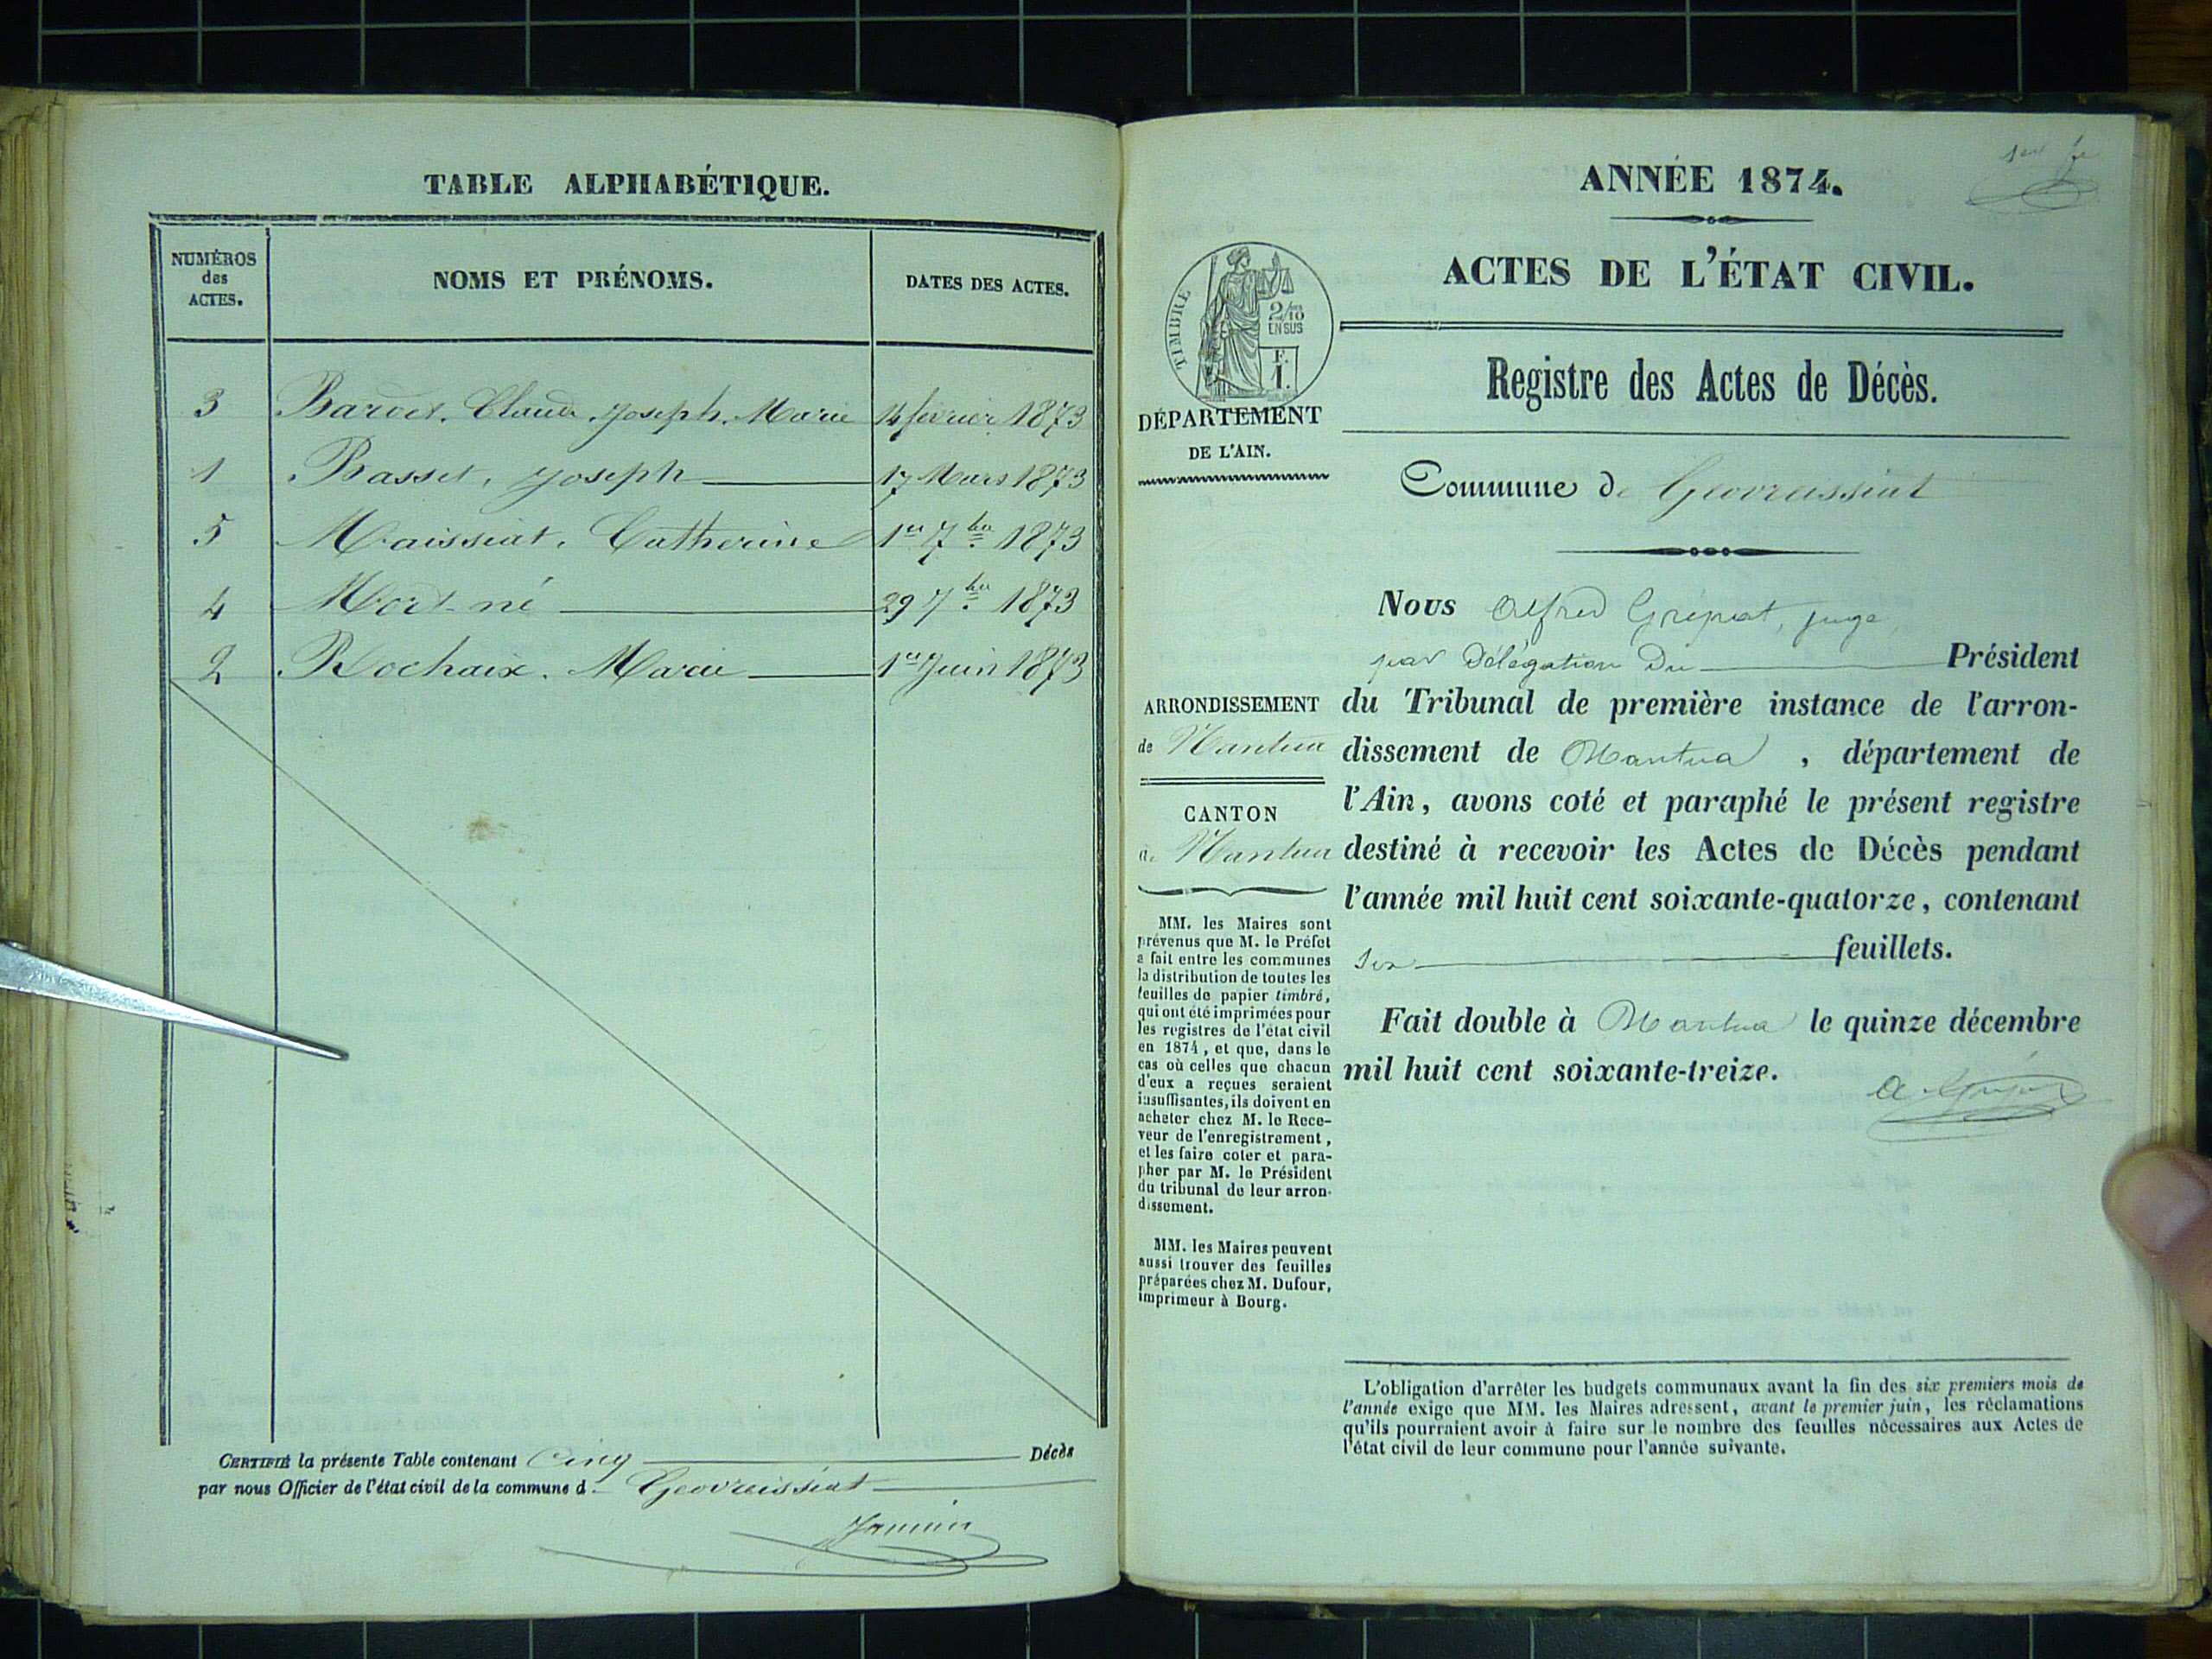 TABLE ALPHABÉTIQUE.
NUMÉROS des ACTES.
NOMS ET PRÉNOMS.
DATES DES ACTES.
3 Claude Joseph Marie février 1873
1 Basset, Joseph 17 Mars 1873
5 Maissiat, Catherine 1er 7bre 1873
4 Mort-né 29 7bre 1873
2 Rochaix, Marie 1er Juin 1873
CERTIFIÉ la présente Table contenant Cinq Décès
par nous Officier de l'état civil de la commune d Geovreissiat
ANNÉE 1874.
1er
ACTES DE L'ÉTAT CIVIL.
TIMBRE
2/10
EN SUS
F.
1.
DÉPARTEMENT
DE L'AIN.
Registre des Actes de Décès.
Commune de Geovreissiat
ARRONDISSEMENT
de Nantua
CANTON
de Nantua
MM. les Maires sont
prévenus que M. le Préfet
a fait entre les communes
la distribution de toutes les
feuilles de papier timbré,
qui ont été imprimées pour
les registres de l'état civil
en 1874, et que, dans le
cas où celles que chacun
d'eux a reçues seraient
insuffisantes, ils doivent en
acheter chez M. le Rece-
veur de l'enregistrement,
et les faire coter et para-
pher par M. le Président
du tribunal de leur arron-
dissement.
MM. les Maires peuvent
aussi trouver des feuilles
préparées chez M. Dufour,
imprimeur à Bourg.
Nous Alfred juge,
par Délégation Du Président
du Tribunal de première instance de l'arron-
dissement de Nantua, département de
l'Ain, avons coté et paraphé le présent registre
destiné à recevoir les Actes de Décès pendant
l'année mil huit cent soixante-quatorze, contenant
six feuillets.
Fait double à Nantua le quinze décembre
mil huit cent soixante-treize.
L'obligation d'arrêter les budgets communaux avant la fin des six premiers mois de
l'année exige que MM. les Maires adressent, avant le premier juin, les réclamations
qu'ils pourraient avoir à faire sur le nombre des feuilles nécessaires aux Actes de
l'état civil de leur commune pour l'année suivante.